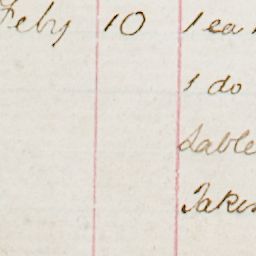 Feby 10 1 ea
1 do
Sable
Takes